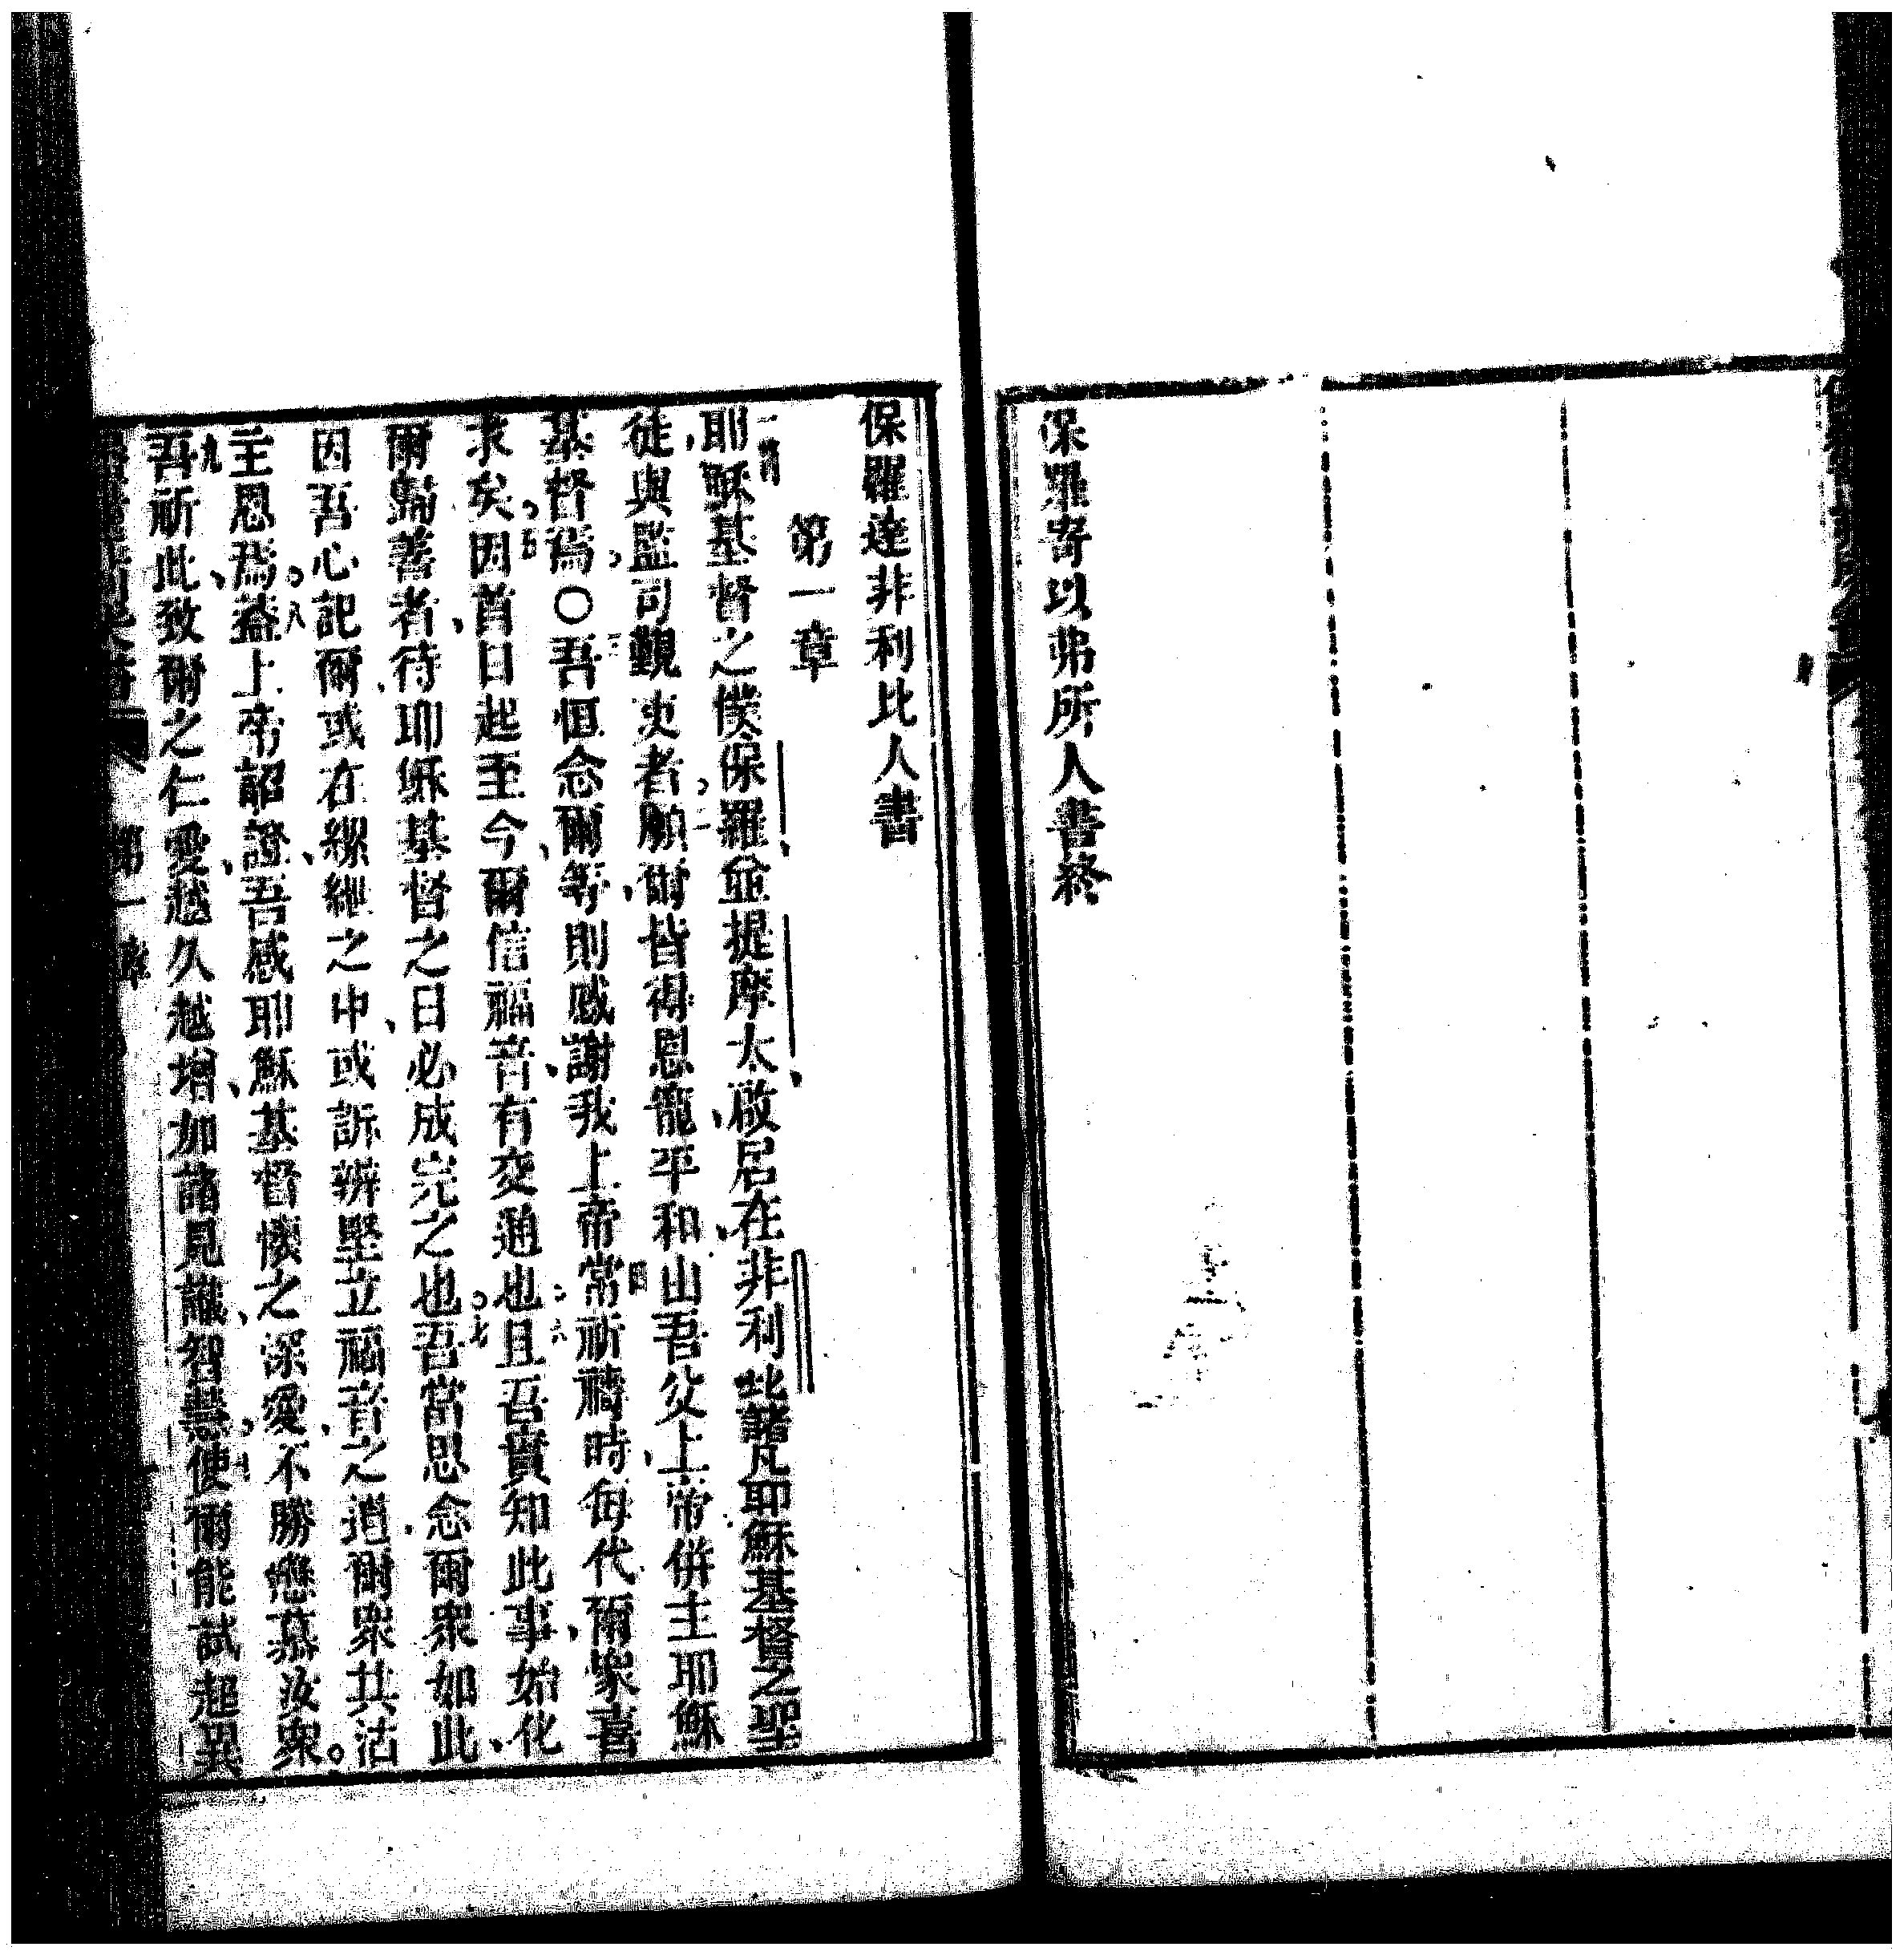 保羅寄以弗所人書終
保羅達非利比人書
第一章
一節耶穌基督之僕保羅並提摩太啟居在非利比諸凡耶穌基督之聖
徒與監司觀吏者二願爾皆得恩寵平和由吾父上帝併主耶穌
基督焉〇三吾恒念爾等則感謝我上帝四常祈禱時每代爾衆喜
求矣五因首日起至今爾信福音有交通也六且吾實知此事始化
爾歸善者待耶穌基督之日必成完之也七吾當思念爾衆如此
因吾心記爾或在縲絏之中或訴辨堅立福音之道爾衆共沾
主恩焉八蓋上帝詔證吾感耶穌基督懷之深愛不勝戀慕汝衆
九吾祈此致爾之仁愛越久越增加諸見識智慧十使爾能試超異
第一章